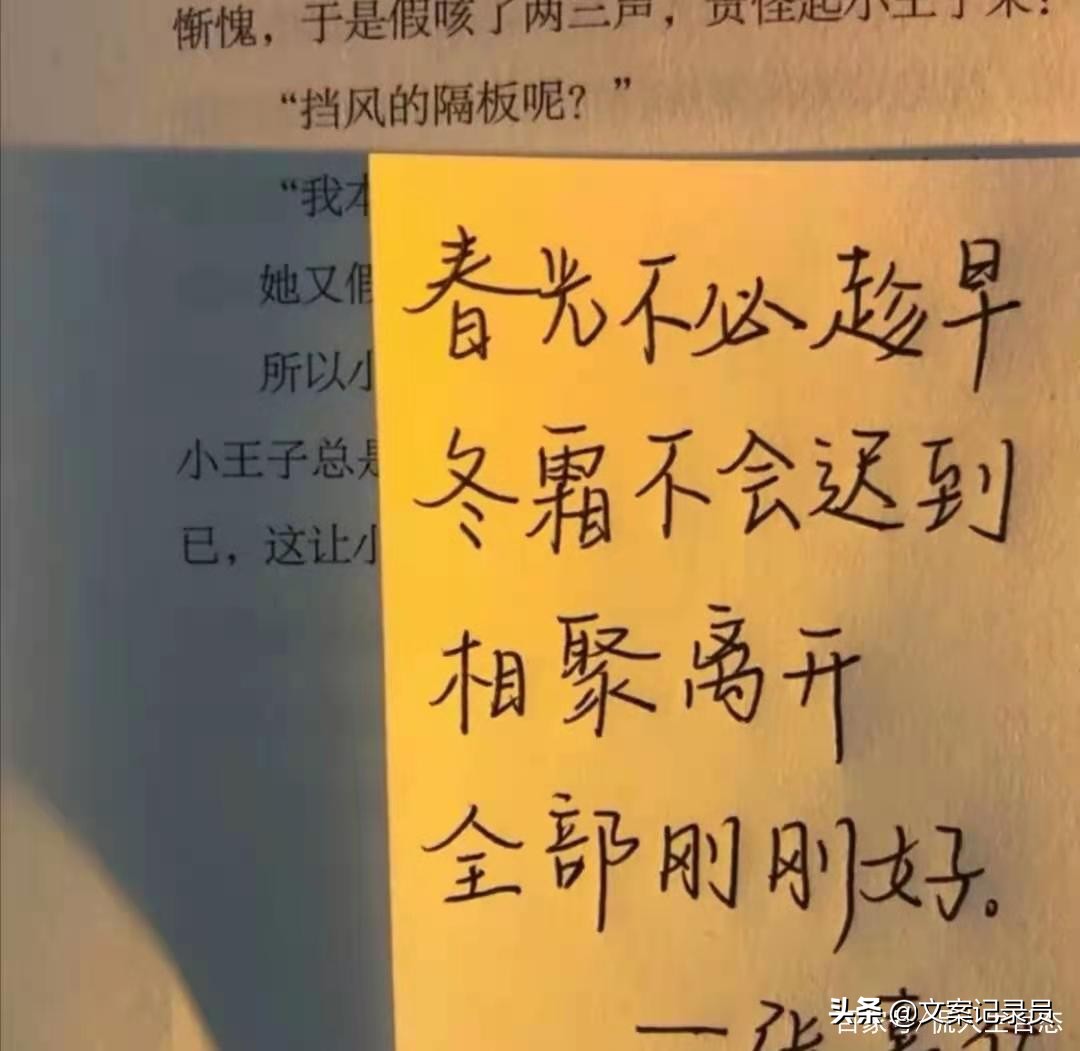 惭愧，于是假咳了两三声，责怪起小王子来：
“挡风的隔板呢？”
“我本
她又假
所以小
小王子总是
已，这让小
春光不必趁早
冬霜不会迟到
相聚离开
全部刚刚好。
一张嘉
头条 @文案记录员
百家号/